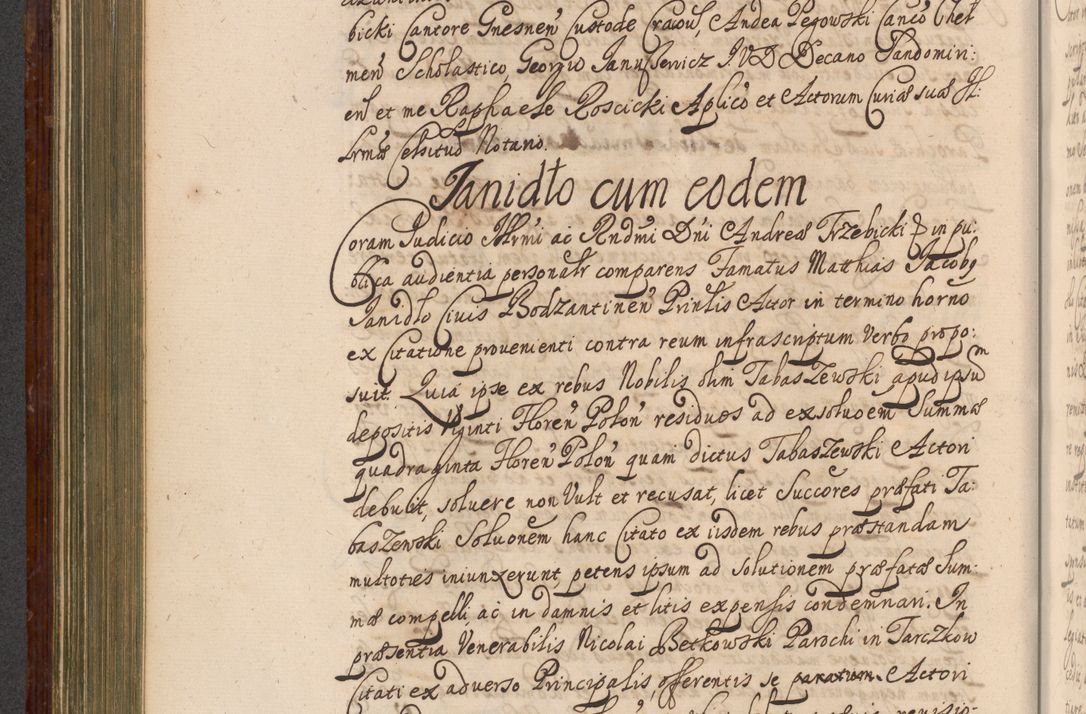 bicki Cantore Gnesneñ Custode Cracov̄, Andrea Pegowski Canco Chel
meñ Scholastico, Georgio Janussewicz J V D Decano Sandomiri:
eñ et me Raphaele Roscicki Aplico et Actorum Curiæ suæ Il:
lrmæ Celsitud Notario.
Janidło cum eodem
Coram Judicio Illrmi ac Rndmi Dni Andreæ Trzebicki in pu:
blica audientia personalr comparens Famatus Matthias Jacoby
Janidło Civis Bodzantineñ Prinlis Actor in termino horno
ex Citatione provenienti contra reum infrascriptum Verbo propo:
suit. Quia ipse ex rebus Nobilis olim Tabaszewski apud ipsum
depositis Viginti Floreñ Poloñ residuos ad exsoluoem Summæ
quadraginta Floreñ Poloñ quam dictus Tabaszewski Actori
debuit, soluere non Vult et recusat, licet Succores præfati Ta:
baszewski Soluonem hanc Citato ex iisdem rebus præstandam
multoties iniunxerunt, petens ipsum ad solutionem præfatæ Sum:
mæ compelli, ac in damnis et litis expensis condemnari. In
præsentia Venerabilis Nicolai Betkowski Parochi in Tarczkow
Citati ex adverso Principalis, offerentis se paratum Actori